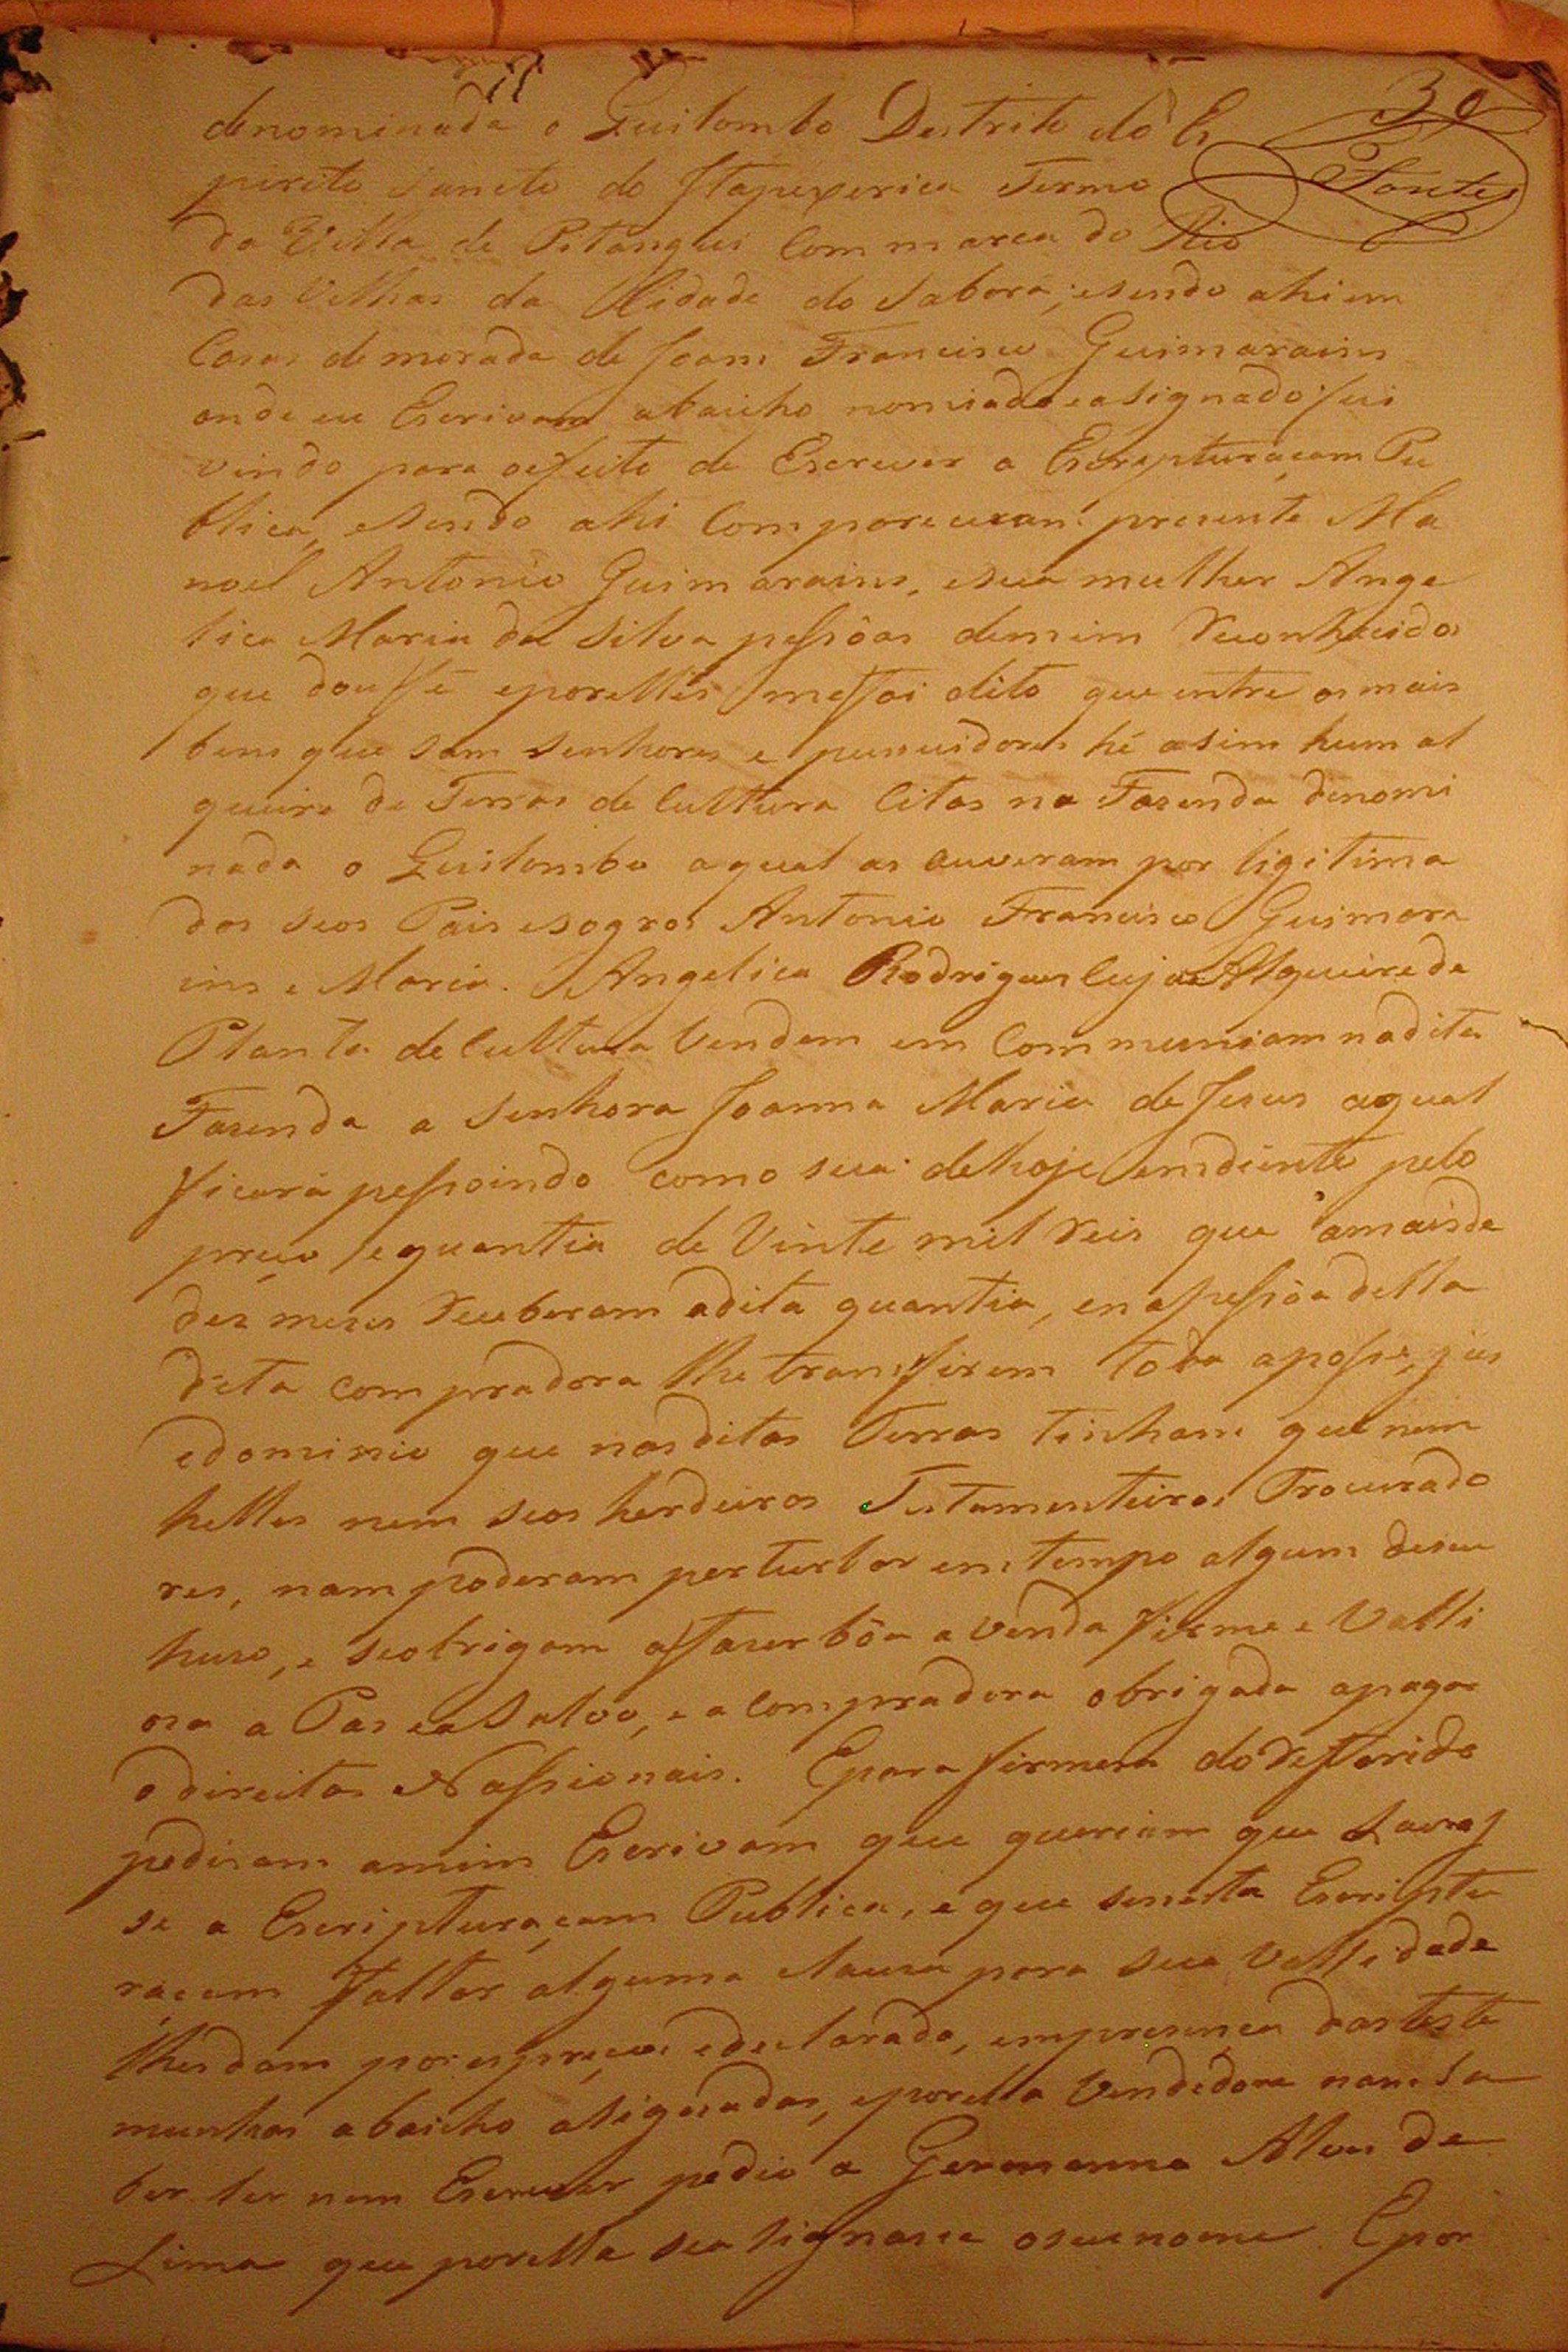 39
Fontes
denominada o Quilombo Destrito do Es
pirito Sancto do Itapexerica Termo
da Villa de Pitangui Commarca do Rio
das Velhas da Cidade do Sabora; esendo ahi em
Casas de morada de Joam Francisco Guimarains
onde eu Escrivam abaicho nomiado easignado fui
vindo para oefeito de Escrever a Escripturaçam Pu
blica, esendo ahi Compareceram presente Ma
noel Antonio Guimarains, esua mulher Ange
lica Maria da Silva pessôas demim reconhecidos
que dou ffé eporelles meffoi dito que entre os mais
bens que sam senhores e pussuidores hé asim hum al
queire de Terras de Cultura Citas na Fazenda denomi
nada o Quilombo aqual as ouveram por ligitima
dos seos Pais esogros Antonio Francisco Guimara
ins e Maria Angelica Rodrigues Cujo Alqueire de
Planta de Cultura Vendem em Communiam nadita
Fazenda a Senhora Joanna Maria de Jesus aqual
ficará pessoindo como sua dehoje emdiente pelo
preço equantia de Vinte mil reis que amaisde
dez mezes receberam adita quantia, ena pessôa della
dita compradora lhe transfirem toda aposse, jus
edominio que nasditas Terras tinham que nem
helles nem seos herdeiros Testamenteiros Procurado
res, nam poderam perturbar em tempo algum deseu
huzo, e seobrigam affazer bôa a venda firme e Valli
oza a Paz eaSalvo, e a Compradora obrigada apagar
o direitos Nassionais. Epara firmeza do refferido
pediram amim Escrivam que queriam que Lavras
se a Escripturaçam Publica, e que senesta Escriptu
raçam faltar alguma clauza para sua Vallidade
lhesdam por espreça edeclarada, empresença dasteste
munhas abaicho asignadas, eporella Vendedora nam Sa
ber ler nem Escrever pedio a Germanno Alves de
Lima que porella sea signasse oseunome. Epor